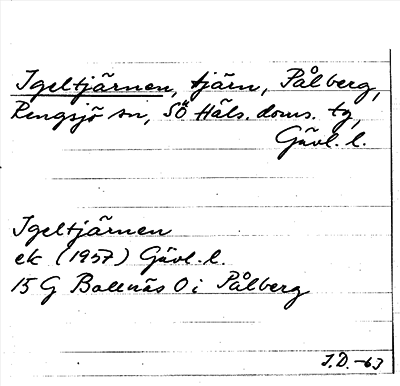 Igeltjärnen, tjärn, Pålberg,
Rengsjö sn, SÖ Häls. doms. tg,
Gävl. l.
Igeltjärnen
ek (1957) Gävl. l.
15 G Bollnäs O i Pålberg
I.D.-63